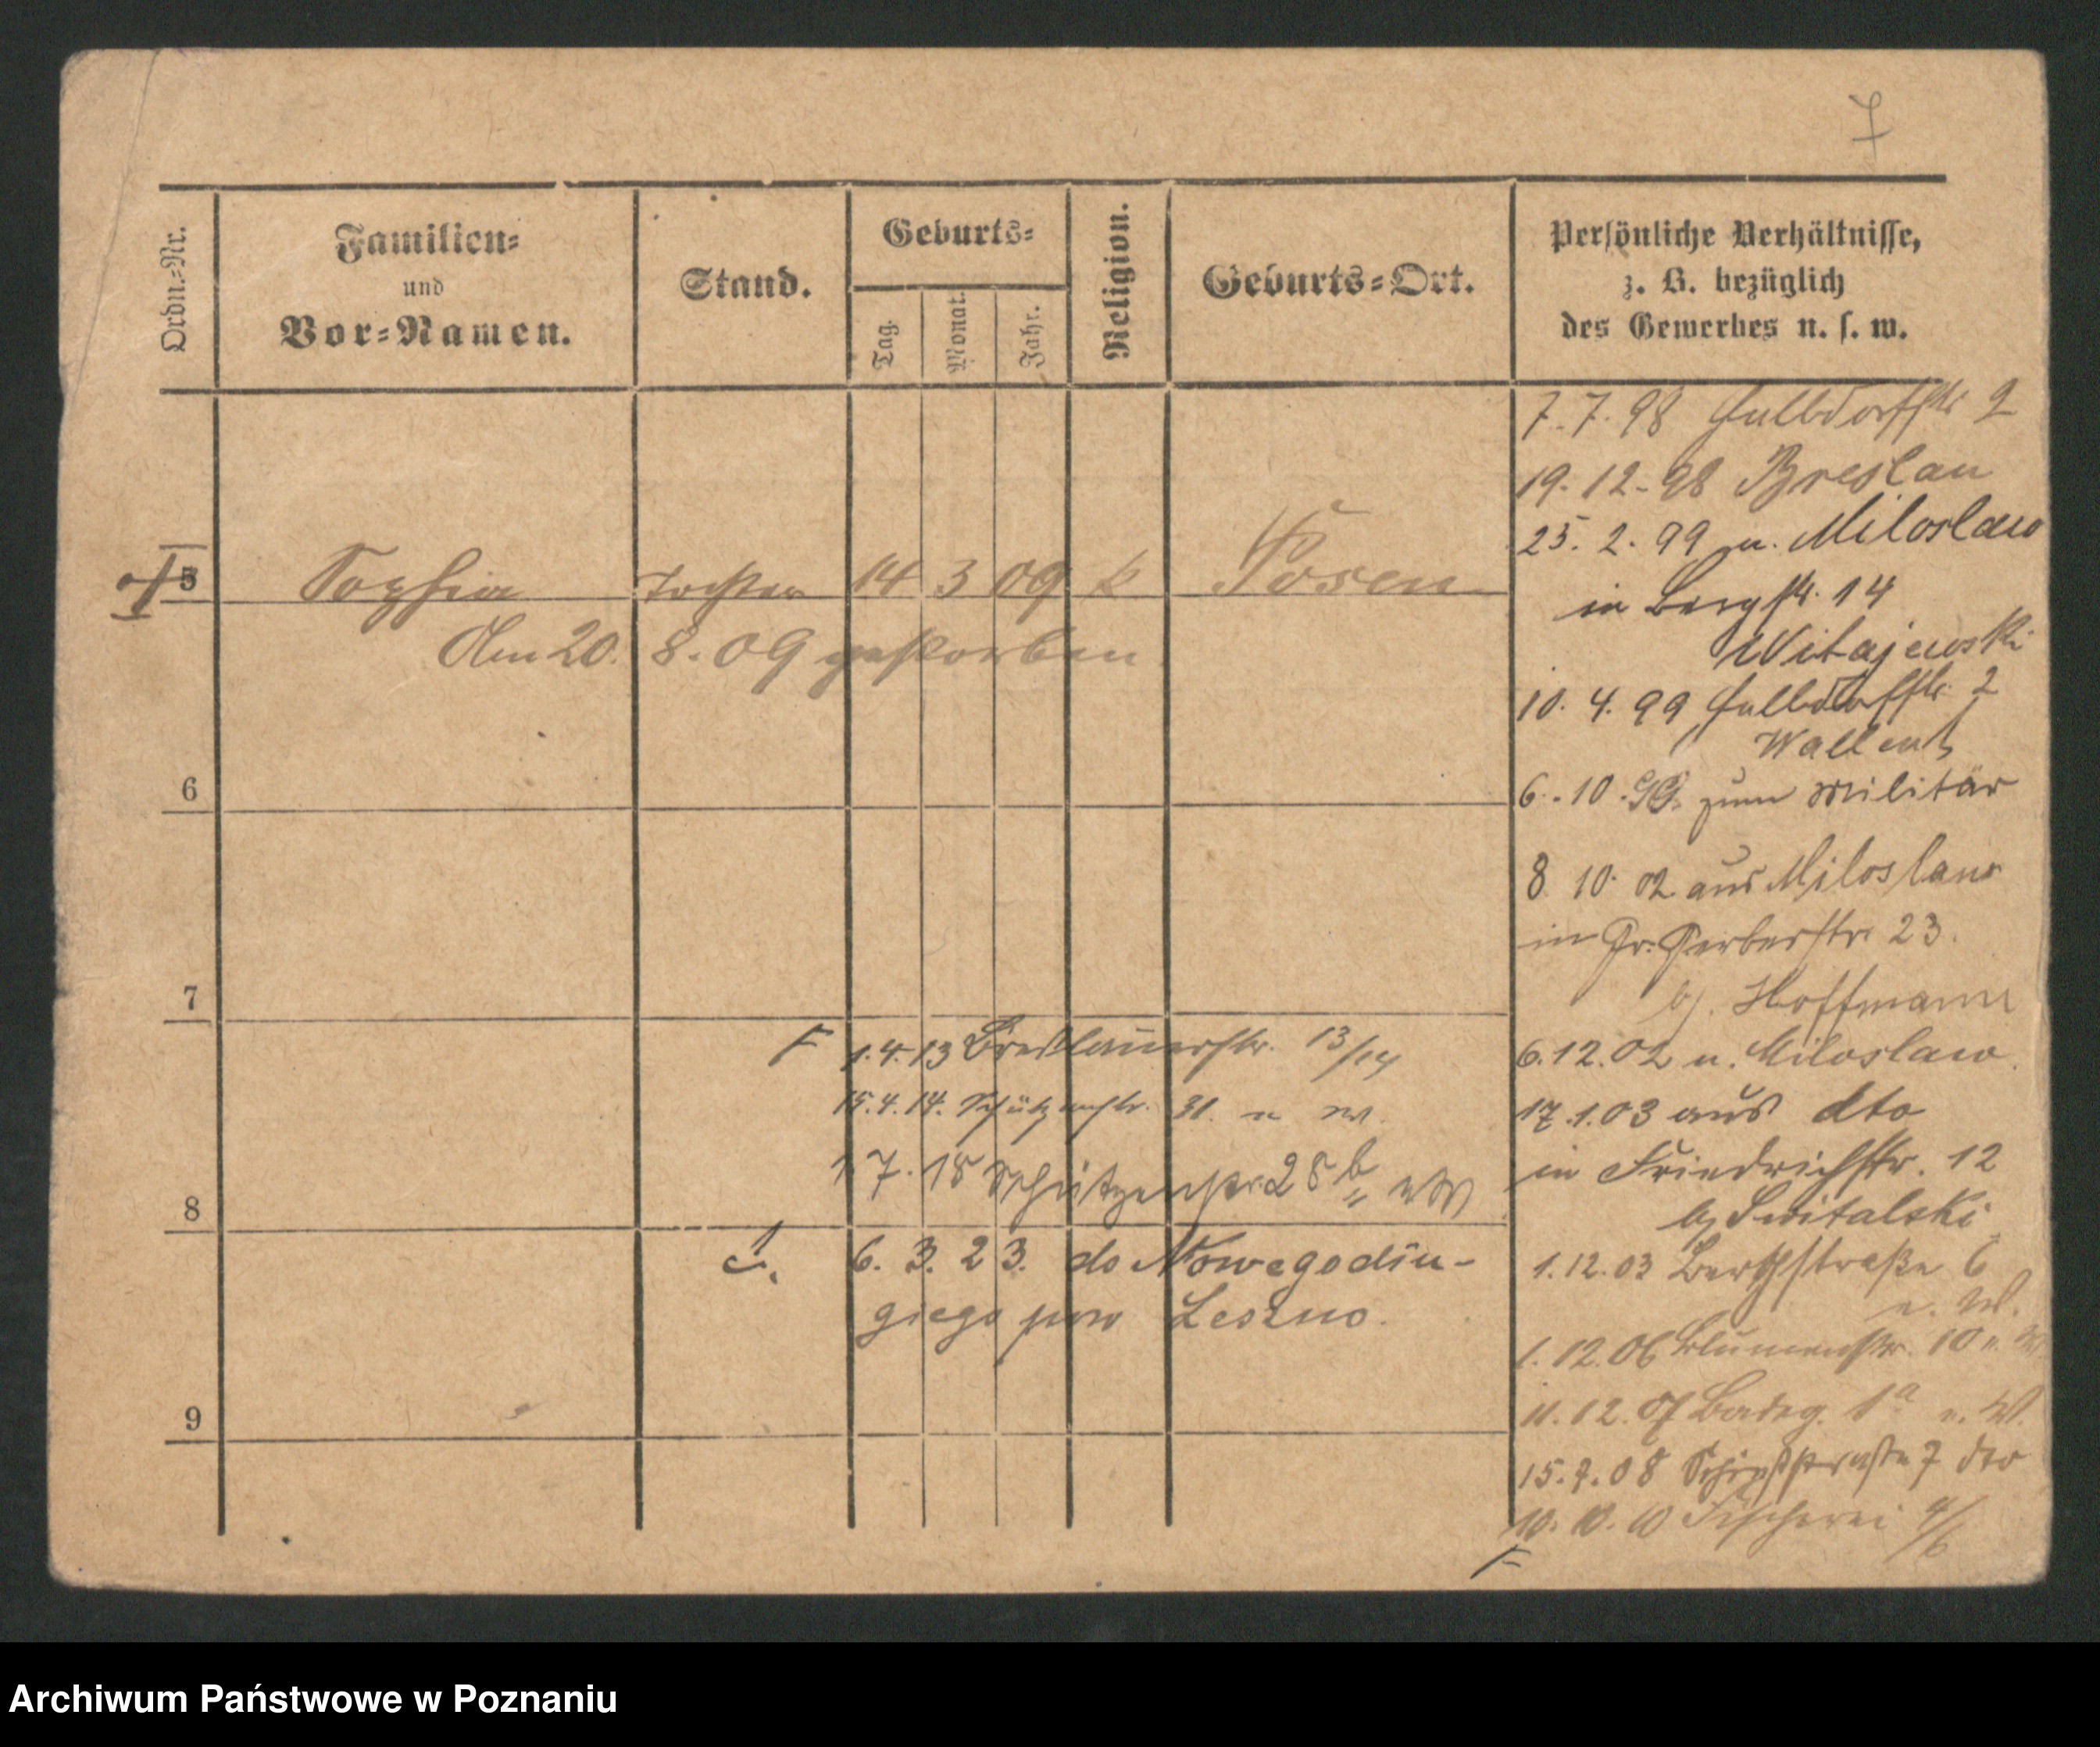 7
Ordn.-Nr.
Familien-
und
Vor-Namen.
Stand.
Geburts-
Tag.
Monat.
Jahr.
Religion.
Geburts-Ort.
Persönliche Verhältnisse,
z. B. bezüglich
des Gewerbes u. s. w.
5 Sophia Tochter 14 3 09 k Posen
Am 20. 8. 09 gestorben
6
7
8
9
F 1.4.13 Breslauerstr. 13/14
15.4.14. Schützenstr. 31. u W.
1 7. 18 Schützenstr. 28 b
6. 3. 23. do Nowego dłu-
giego pow Leszno.
7.7.98 Halbdorfstr 2
19.12.98 Breslau
25. 2. 99 u. Miloslaw
in Bergstr. 14
Witajewski
10. 4. 99 Halbdorfstr. 2
6.10.99. zum Militär
8 10. 02 aus Miloslaw
in Gr. Gerberstr. 23.
bj. Hoffmann
6.12.02 u. Miloslaw.
17.1.03 aus dto
in Friedrichstr. 12
bj Switalski
1.12.03 Bergstraße 6
u. W.
1.12.06 Blumenstr. 10 u. W.
11.12.07 Badeg. 1a u. W.
15.7.08 Schießstraße 7 dto
10. 10. 10 Fischerei 4/6
F
Archiwum Państwowe w Poznaniu